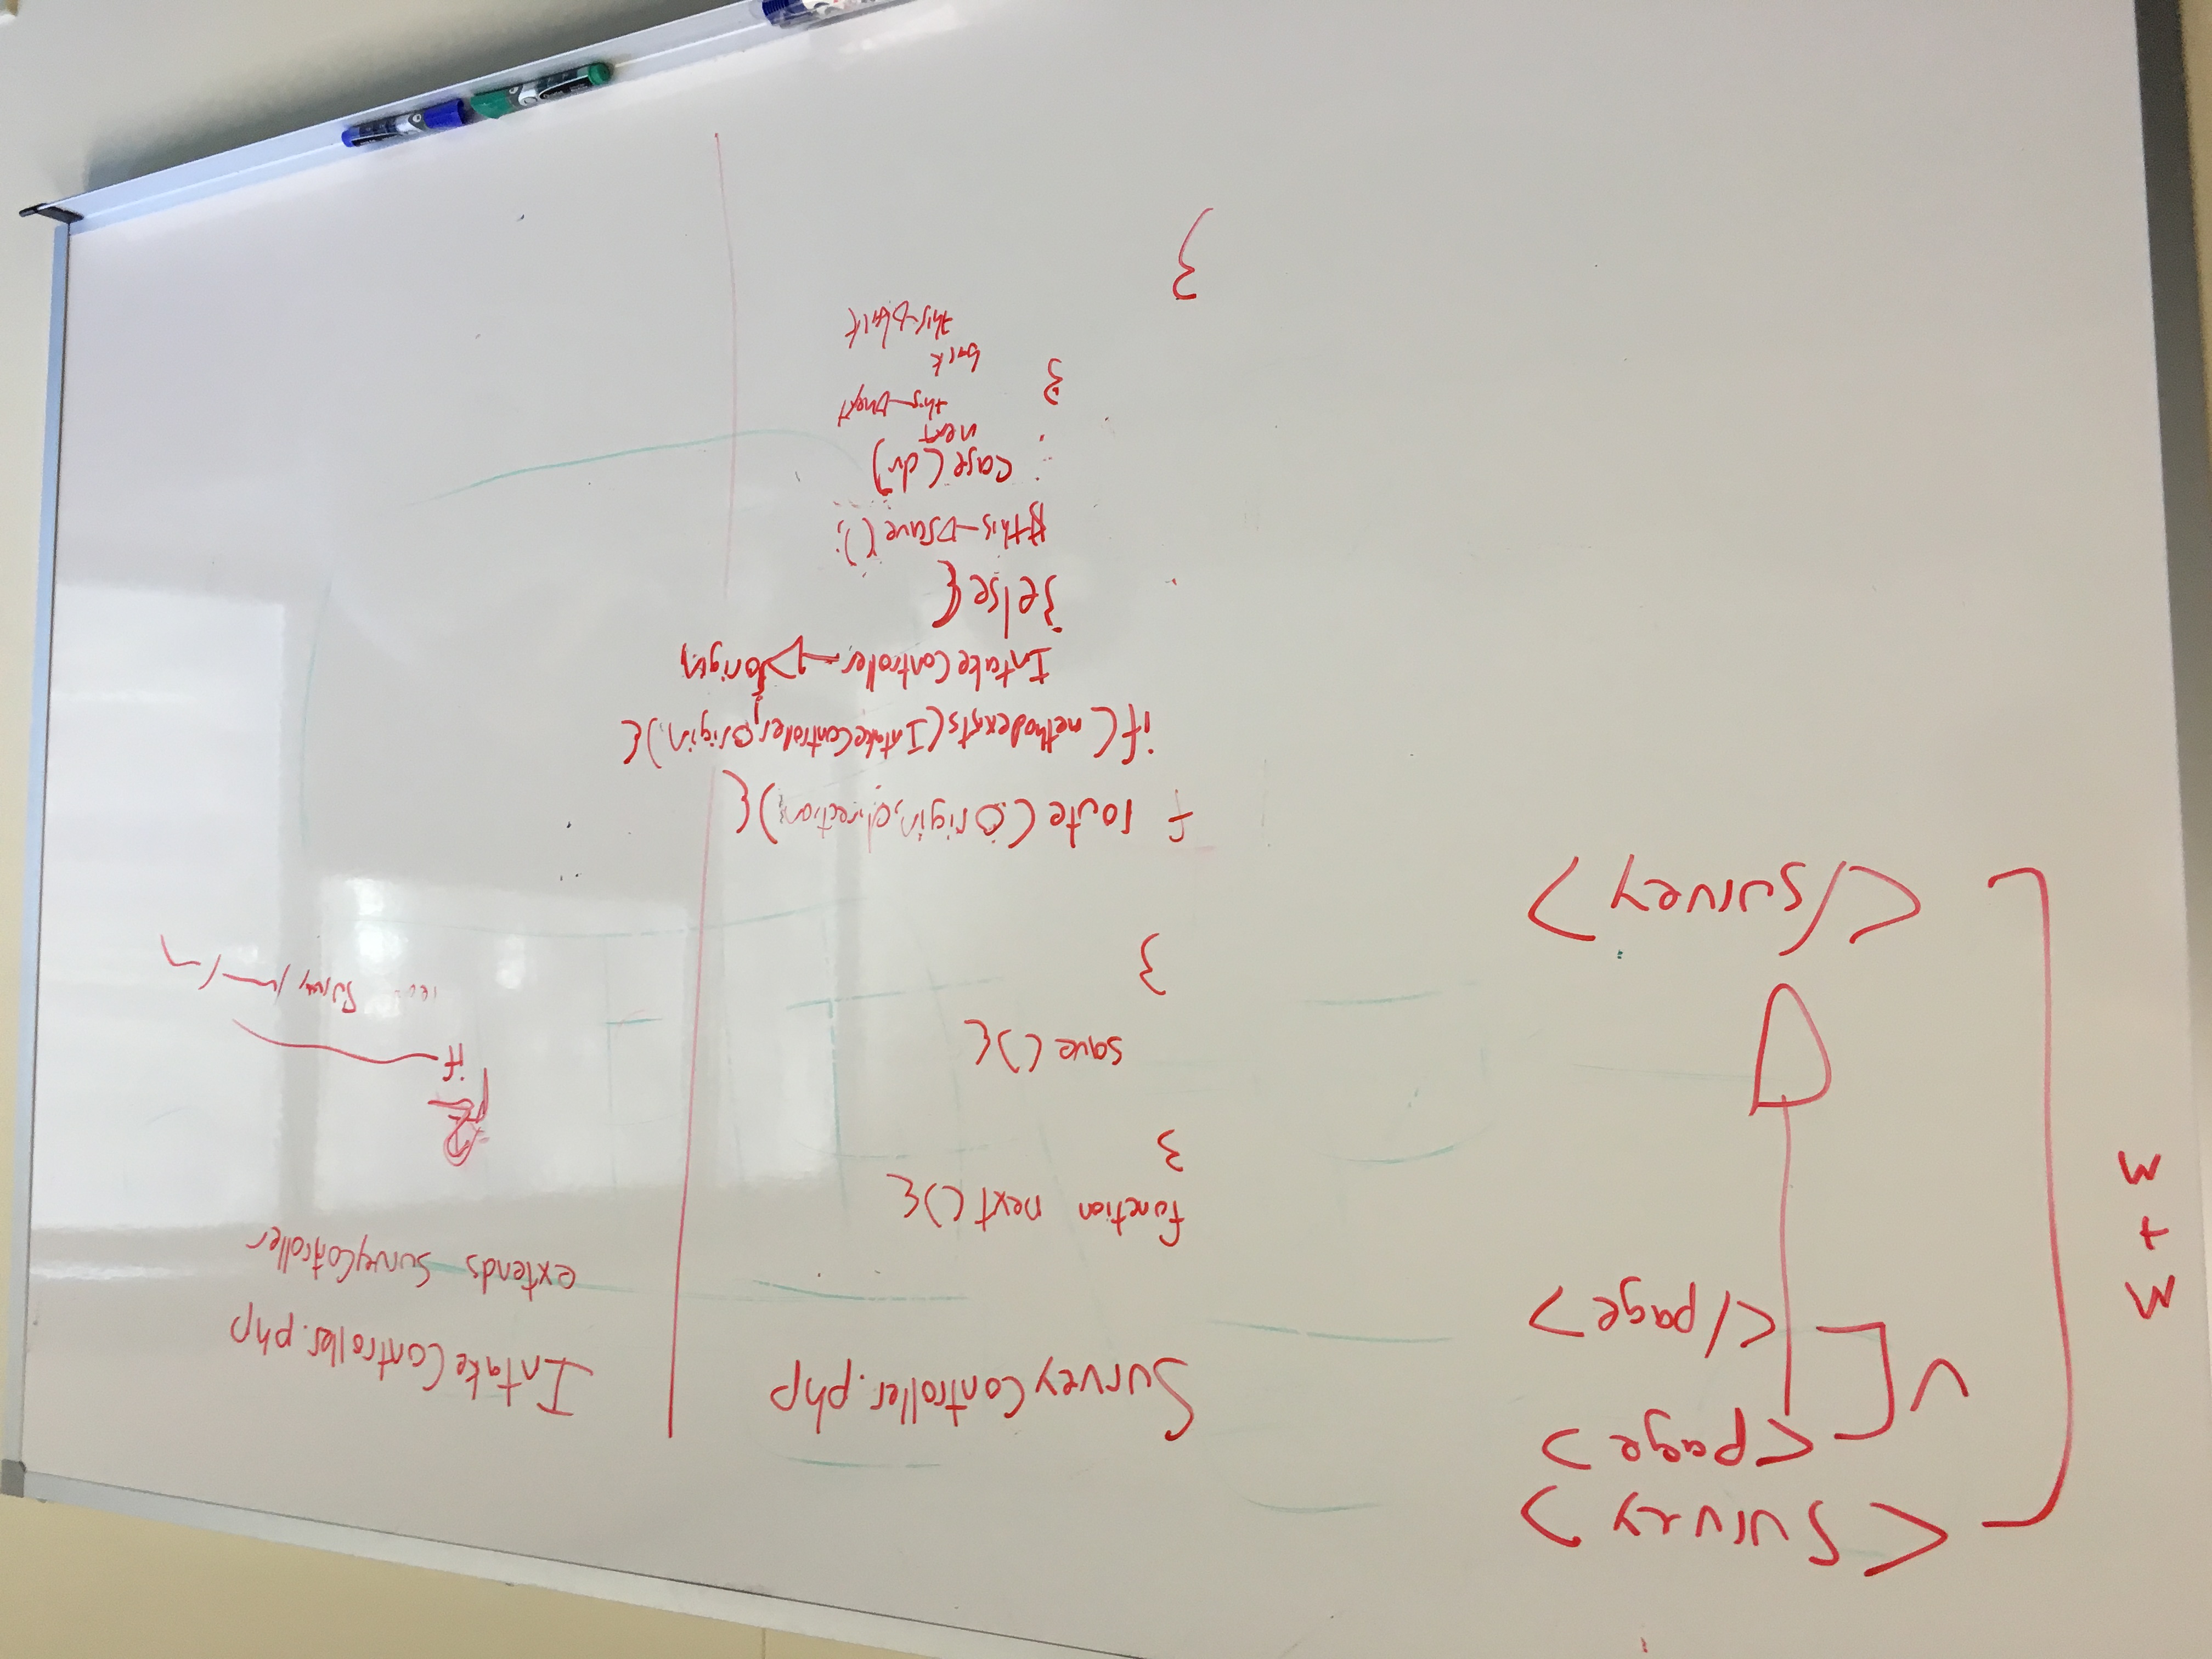 <Survey>
<page>
V
</page>
M
+
M
</survey>
SurveyController.php
function next(){
}
save(){
}
f route(origin,direction){
if(methodexists(IntakeController,origin)){
IntakeController->origin
}else{
$this->save();
case(dir)
next
this->next
}
back
this->back
}
IntakeController.php
extends SurveyController
p2
if
survey/